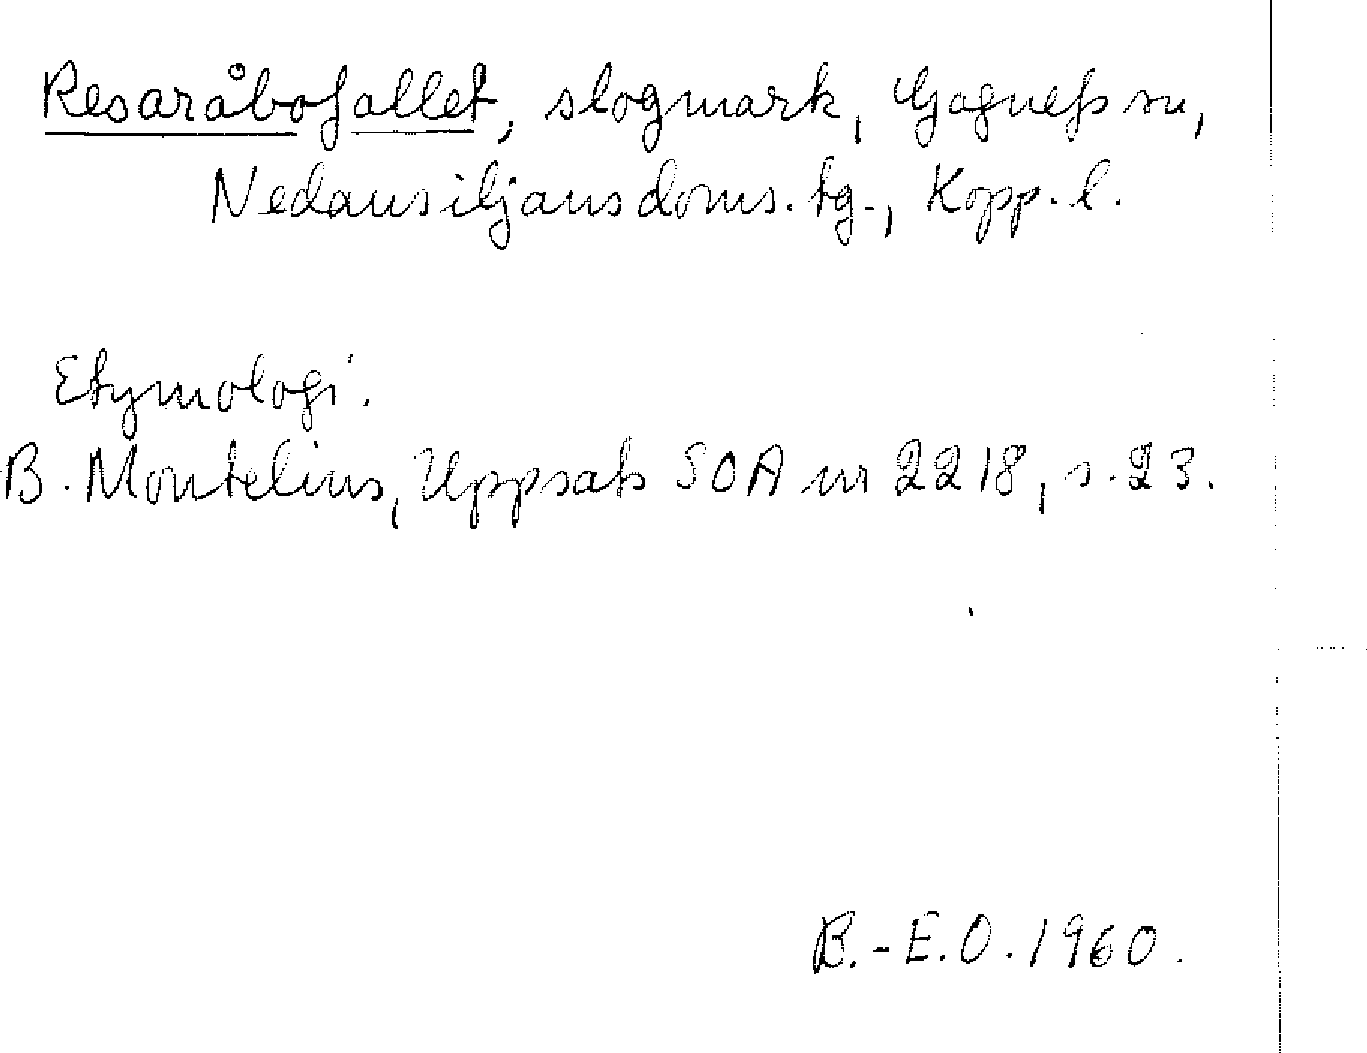 Resaråbofallet, slogmark, Gagnefs sn,
Nedansiljans doms. tg., Kopp. l.
Etymologi.
B. Montelius, Uppsats SOA nr 2218, s. 23.
B.-E.O. 1960.